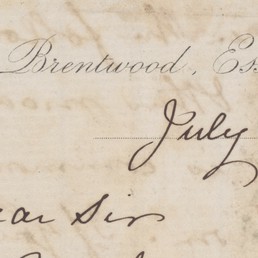 Brentwood, Es
July
ear Sir